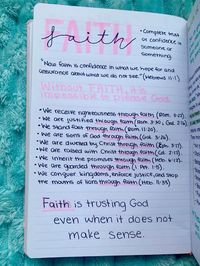 FAITH
faith
• Complete trust
or confidence in
someone or
something.
"Now faith is confidence in what we hope for and
assurance about what we do not see." (Hebrews 11:1)
Without FAITH, it is
impossible to please God.
• We receive righteousness through faith (Rom. 3:22)
• We are justified through faith (Rom.
• We stand fast through faith (Rom. 11:20)
• We are sons of God through faith (Gal. 3:26)
• We are dwelled by Christ through faith (Eph.
• We are raised with Christ through faith (Col. 2:12)
• We inherit the promises through faith (Heb. 6:12)
• We are guarded through faith (1 Pet. 1:5)
• We conquer kingdoms, enforce justice, and stop
the mouths of lions through faith (Heb. 11:33)
Faith is trusting God
even when it does not
make sense.